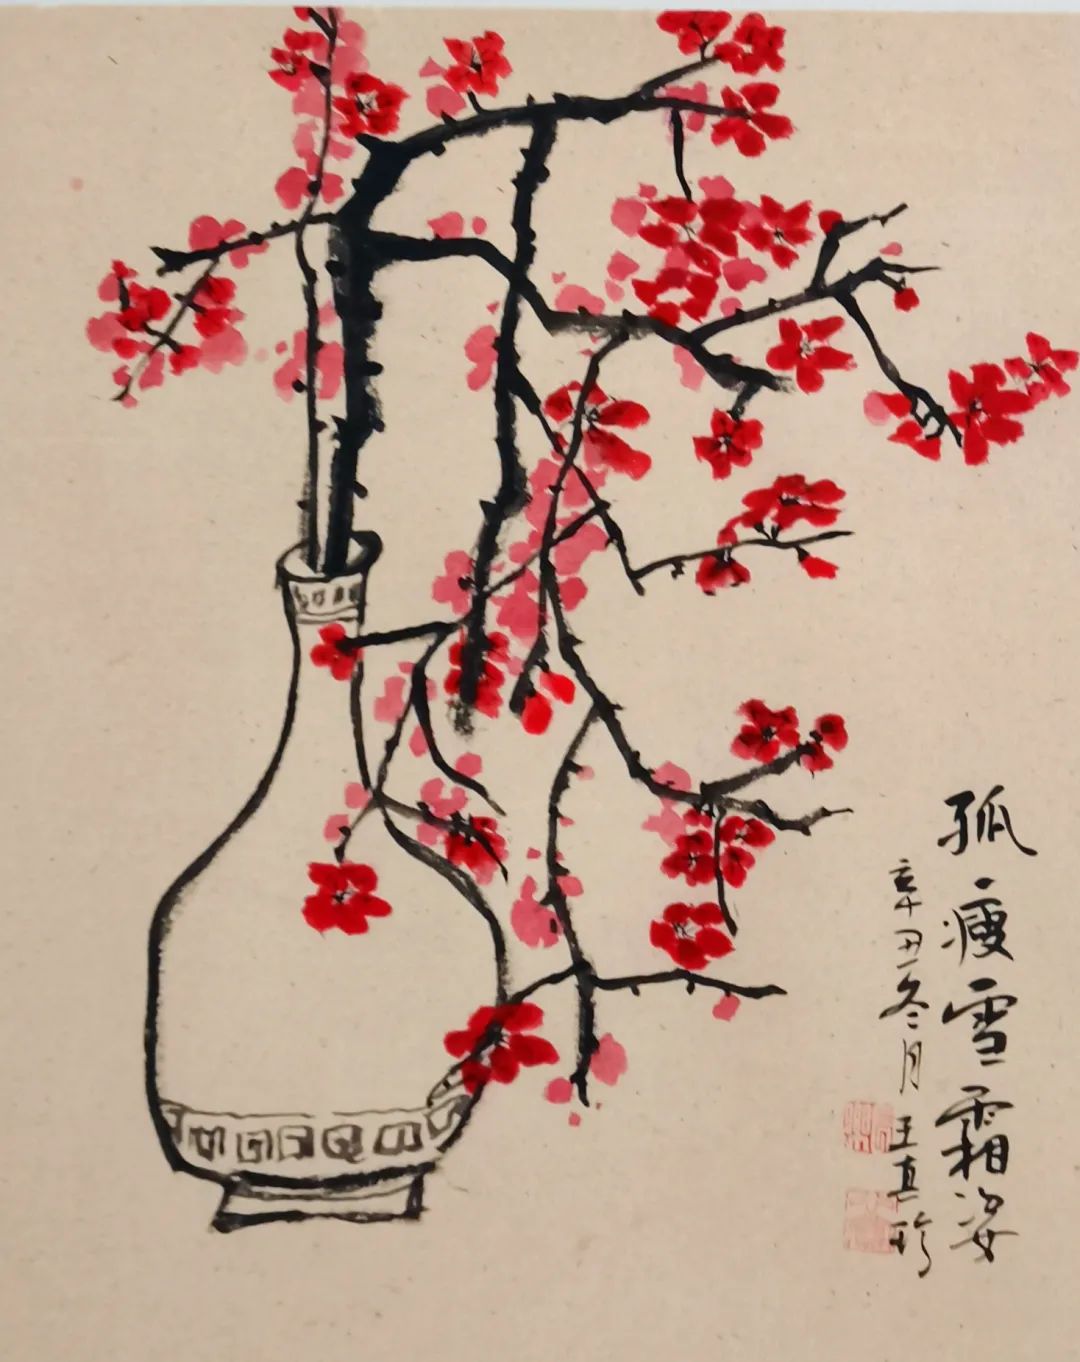 孤瘦雪霜姿
辛丑冬月
王真珍